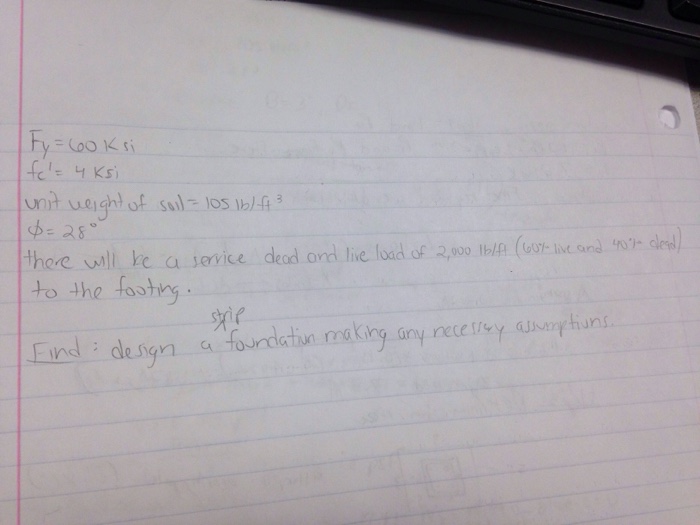 Fy = 60 Ksi
fc' = 4 Ksi
unit weight of soil = 105 lb/ft³
φ = 28°
there will be a service dead and live load of 2,000 lb/ft (60% live and 40% dead)
to the footing.
strip
Find : design a foundation making any necessary assumptions.